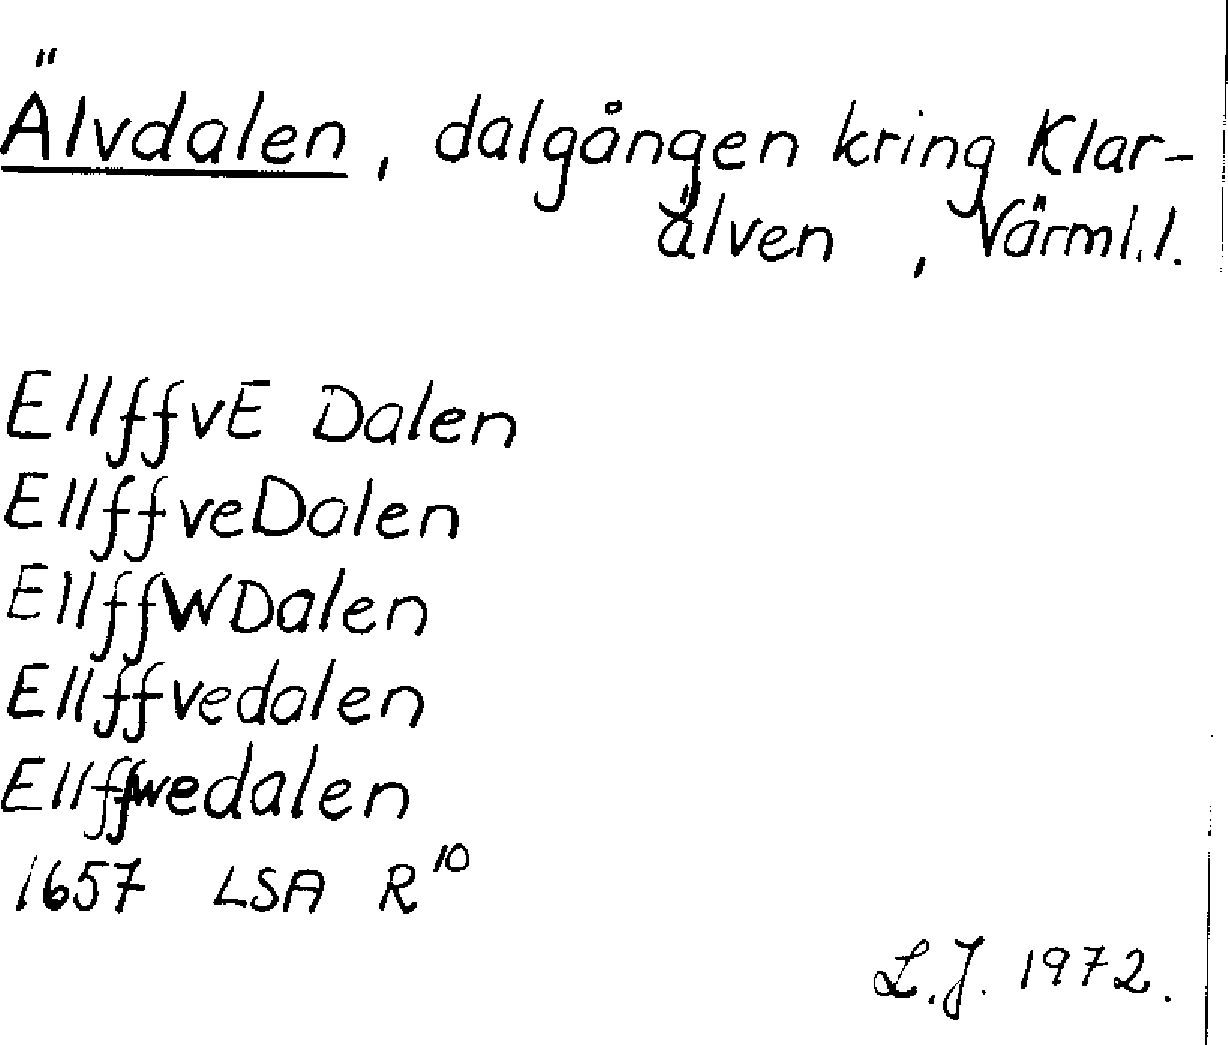 Älvdalen, dalgången kring Klar-
älven, Värml.l.
EllffvE Dalen
EllffveDalen
EllffWDalen
Ellffvedalen
Ellffwedalen
1657 LSA R¹⁰
L.J. 1972.